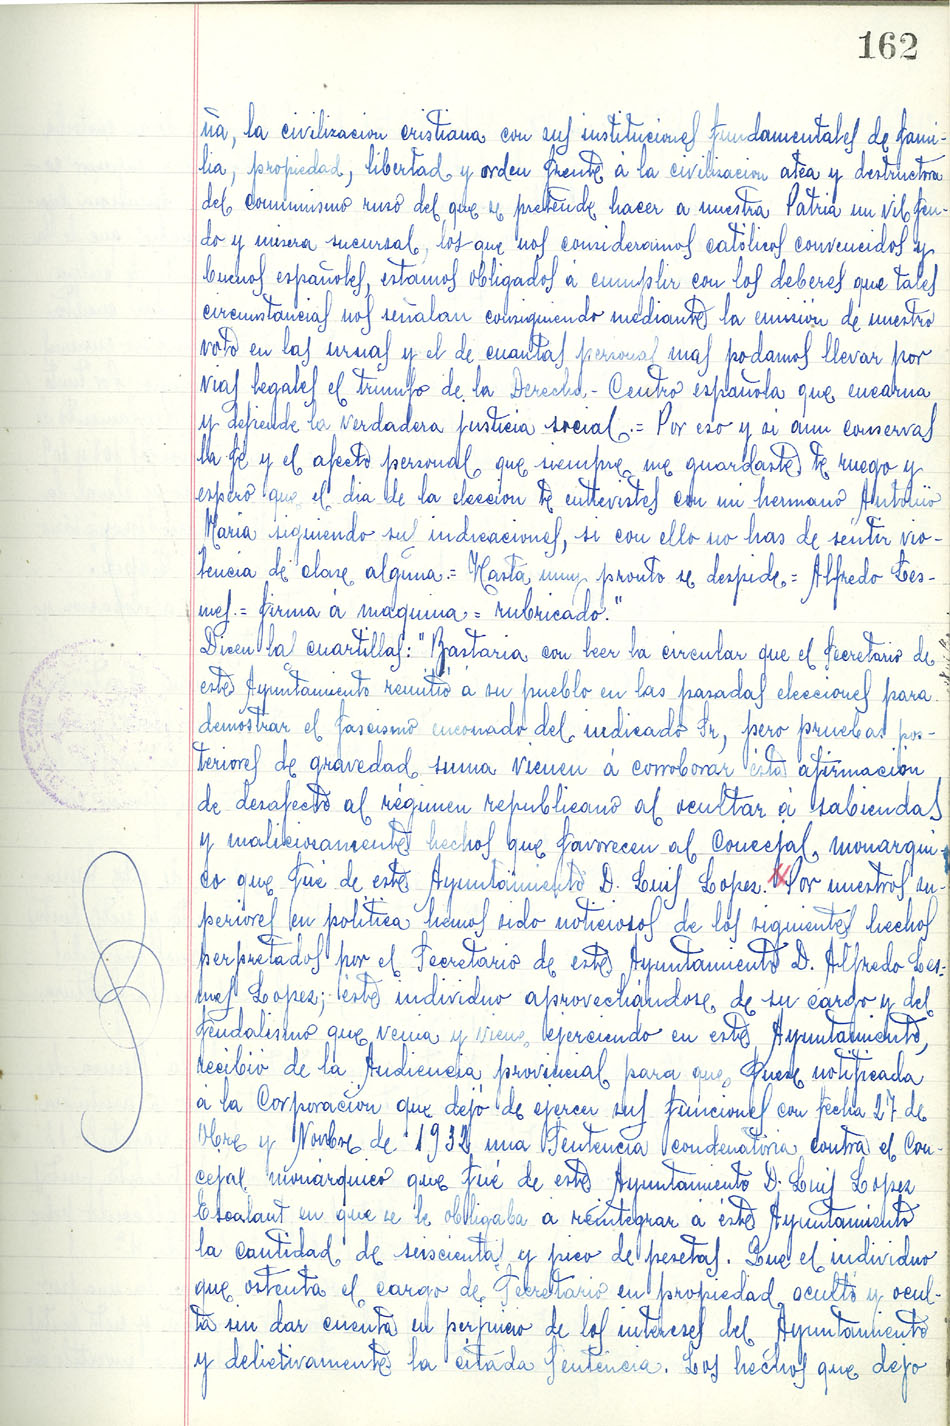 162
ña, la civilizacion cristiana con sus instituciones fundamentales de fami-
lia, propiedad, libertad y orden frente á la civilizacion atea y destructora
del comunismo ruso del que se pretende hacer a nuestra Patria un vil feu-
do y misera sucursal, los que nos consideramos católicos convencidos y
buenos españoles, estamos obligados á cumplir con los deberes que tales
circunstancias nos señalan consiguiendo mediante la emisión de nuestro
voto en las urnas y el de cuantas personas mas podamos llevar por
vias legales el triunfo de la Derecha-Centro española que encarna
y defiende la verdadera justicia social.= Por eso y si aun conservas
la fé y el afecto personal que siempre me guardaste te ruego y
espero que el dia de la eleccion te entrevistes con mi hermano Antonio
Maria siguiendo sus indicaciones, si con ello no has de sentir vio-
lencia de clase alguna.= Hasta muy pronto se despide= Alfredo Les-
mes.= firma á maquina= rubricado."
Dicen las cuartillas: "Bastaria con leer la circular que el Secretario de
este Ayuntamiento remitió á su pueblo en las pasadas elecciones para
demostrar el fascismo enconado del indicado Sr, pero pruebas pos-
teriores de gravedad suma vienen á corroborar esta afirmación
de desafecto al régimen republicano al ocultar á sabiendas
y maliciosamente hechos que favorecen al Concejal monarqui-
co que fué de este Ayuntamiento D. Luis Lopez. Por nuestros su-
periores en politica hemos sido noticiosos de los siguientes hechos
perpretados por el Secretario de este Ayuntamiento D. Alfredo Les-
mes Lopez; este individuo aprovechándose de su cargo y del
feudalismo que venia y viene ejerciendo en este Ayuntamiento,
recibió de la Audiencia provincial para que fuese notificada
á la Corporación que dejó de ejercer sus funciones con fecha 27 de
Obre y Novbre de 1932 una Sentencia condenatoria contra el Con-
cejal monárquico que fué de este Ayuntamiento D. Luis Lopez
Escalant en que se le obligaba a reintegrar a éste Ayuntamiento
la cantidad de seiscientas y pico de pesetas. Que el individuo
que ostenta el cargo de Secretario en propiedad ocultó y ocul-
ta sin dar cuenta en perjuicio de los intereses del Ayuntamiento
y delictivamente la citada Sentencia. Los hechos que dejo